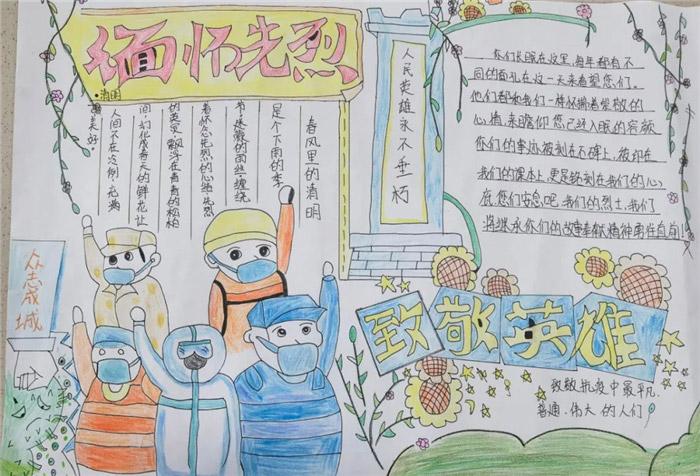 缅怀先烈
•清明
春风里的清明
是个下雨的季
节,迷濛的雨丝,缠绕
着怀念先烈的心绪,先烈
的英灵,飘浮在青青的松柏
间,幻化成春天的鲜花,让
人间不在冷例,充满
着美好
人民英雄永不垂朽
你们长眠在这里,每年都有不
同的面孔在这一天来看望您们。
他们都和我们一样怀揣着崇敬的
心情,来瞻仰您已经入眠的容颜
你们的事迹被刻在石碑上,被印在
我们的课本上,更是铭刻在我们的心
底,您们安息吧,我们的烈士,我们
将继承你们的奉献精神勇往直前!
众志成城
致敬英雄
致敬抗疫中最平凡
普通、伟大的人们